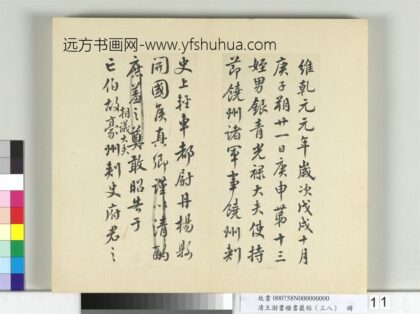 远方书画网- www.yfshuhua.com
維乾元元年歲次戊戌十月
庚子朔廿一日庚申第十三
姪男銀青光祿大夫使持
節饒州諸軍事饒州刺
史上輕車都尉丹楊縣
開國侯真卿謹以清酌
庶羞之奠敢昭告于
議大夫
亡伯故豪州刺史府君之
故書 000758N000000000
清王澍書積書巖帖（三八） 冊
11